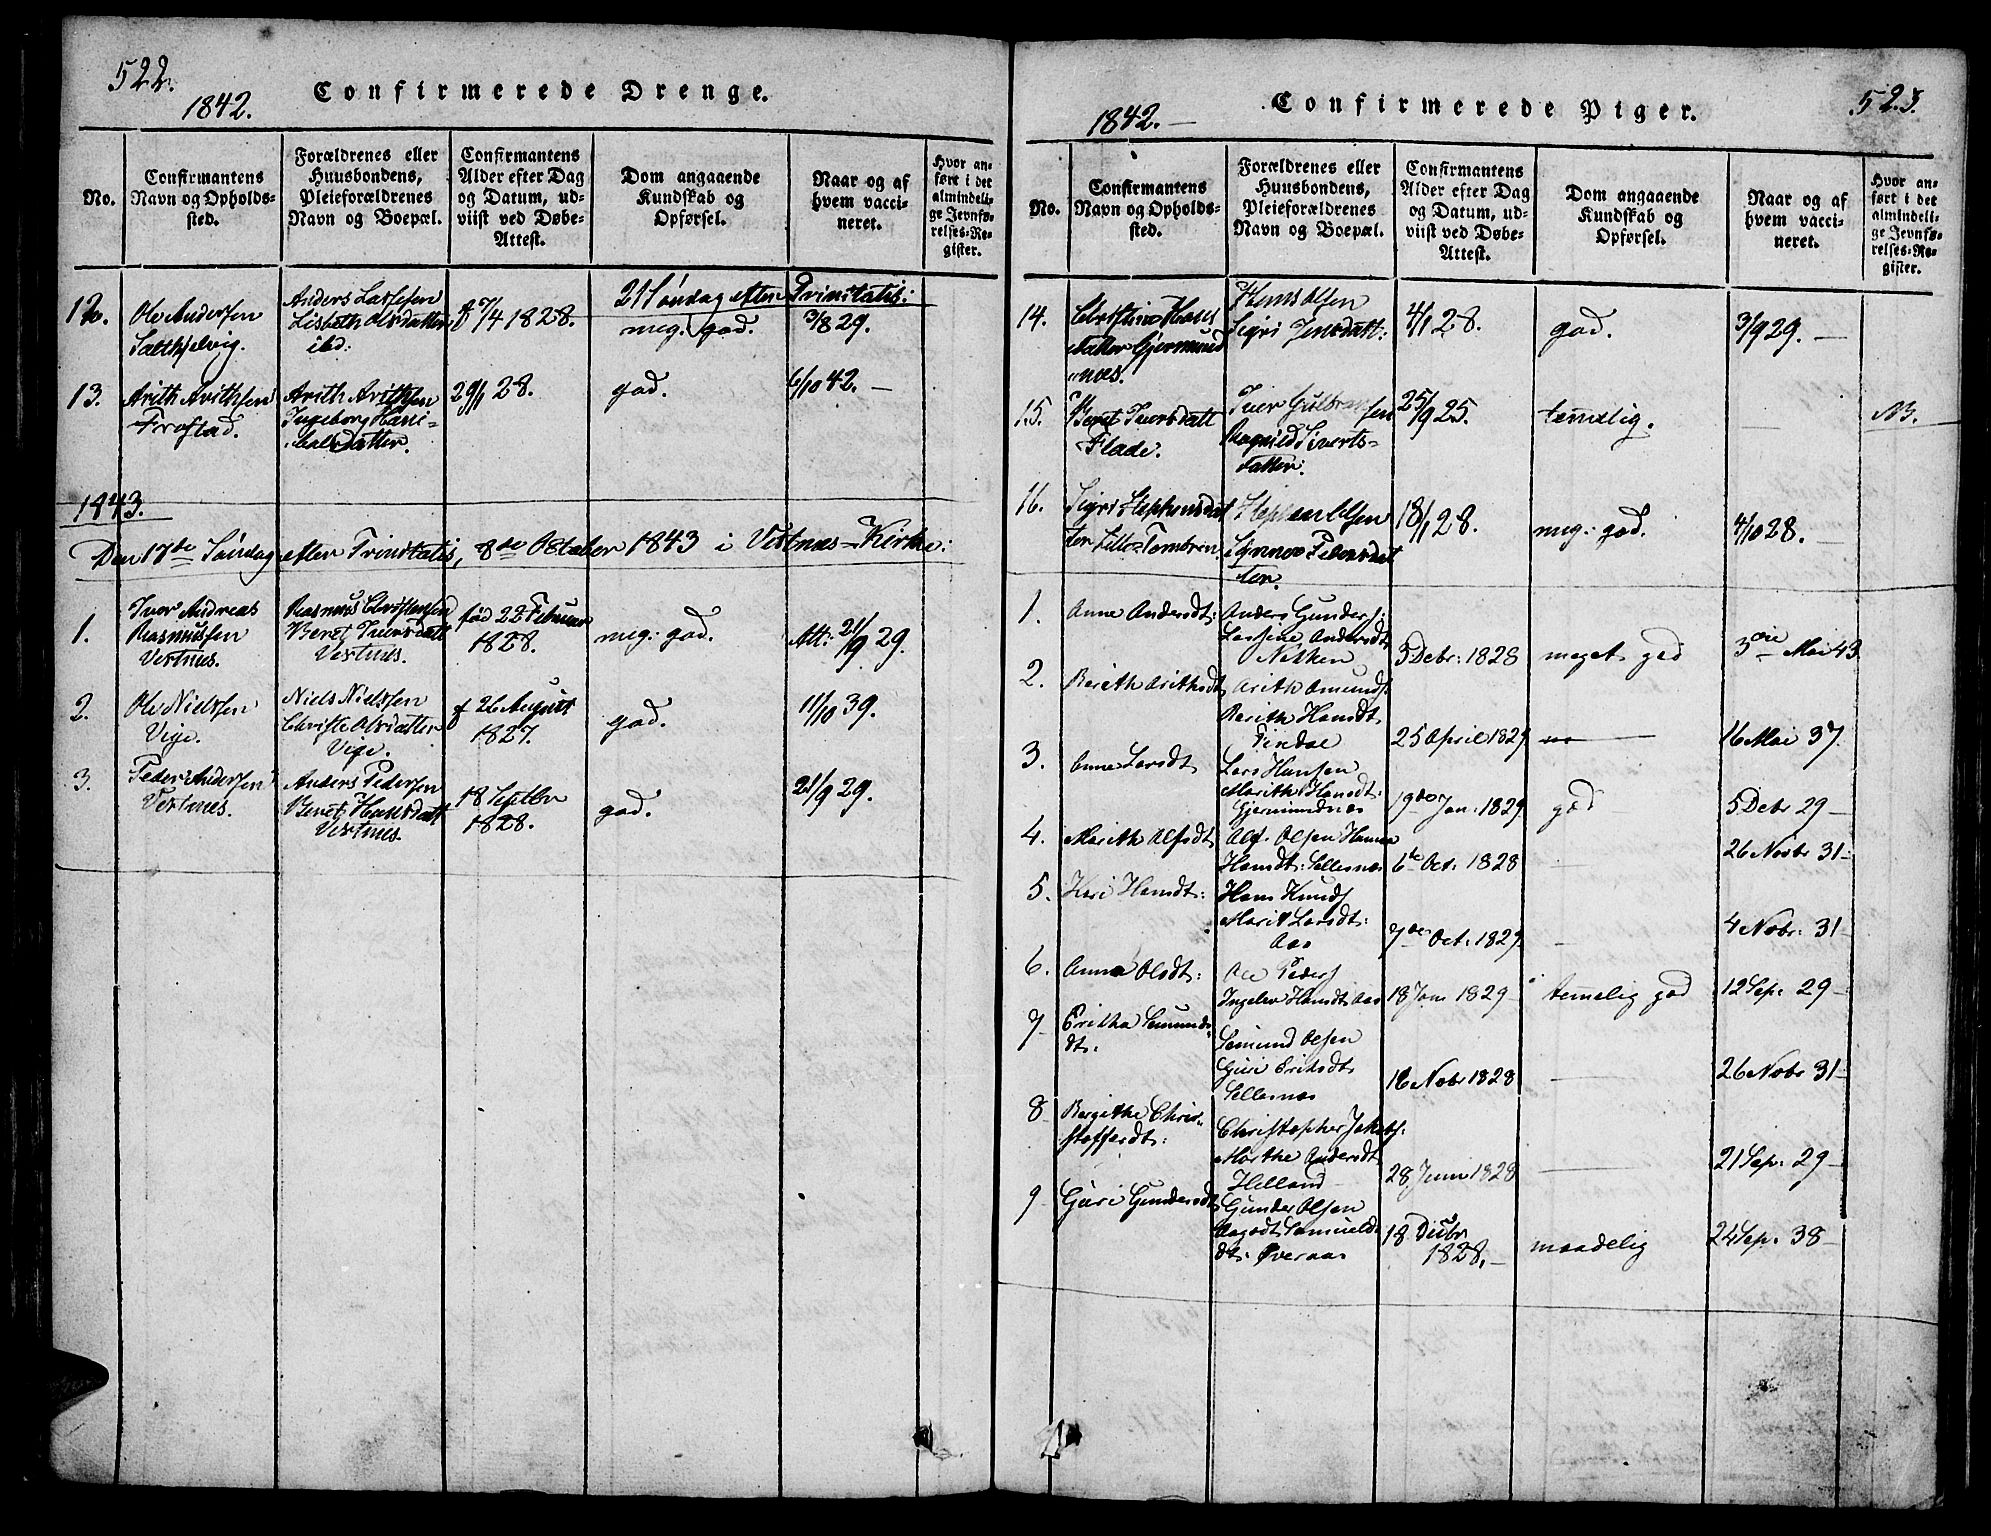 522.
1842.
Confirmerede Drenge.
No.
Confirmantens
Navn og Opholds-
sted.
Forældrenes eller
Huusbondens,
Pleieforældrenes
Navn og Boepæl.
Confirmantens
Alder efter Dag
og Datum, ud-
viist ved Døbe-
Attest.
Dom angaaende
Kundskab og
Opførsel.
Naar og af
hvem vacci-
neret.
Hvor an-
ført i det
almindeli-
ge Jevnfø-
relses-Re-
gister.
21 Søndag efter Trinitatis:
12.
Ole Andersen
Salthjelvig.
Anders Lassesen
Lisbeth Olsdatter
ibd:
7/4 1828.
meg. god.
3/8 29.
13.
Arith Arithsen
Frostad.
Arith Arithsen
Ingeborg Hani-
balsdatter.
29/1 28.
god.
6/10 42. —
1843.
Den 17de Søndag efter Trinitatis, 8de October 1843 i Vestnæs-Kirke:
1.
Iver Andreas
Rasmussen
Vestnes.
Rasmus Christensen
Beret Iversdatt
Vestnes.
fød 22 Februar
1828.
meg: god.
Att: 21/9 29.
2.
Ole Nielssen
Vige.
Niels Nielssen
Christe Olsdatter
Vige.
f 26 August
1827.
god.
11/10 39.
3.
Peder Andersen
Vestnes.
Anders Pedersen
Beret Hansdatt
Vestnes.
18 Septbr
1828.
god.
21/9 29.
523.
1842. —
Confirmerede Piger.
No.
Confirmantens
Navn og Opholds-
sted.
Forældrenes eller
Huusbondens,
Pleieforældrenes
Navn og Boepæl.
Confirmantens
Alder efter Dag
og Datum, ud-
viist ved Døbe-
Attest.
Dom angaaende
Kundskab og
Opførsel.
Naar og af
hvem vacci-
neret.
Hvor an-
ført i det
almindeli-
ge Jevnfø-
relses-Re-
gister.
14.
Christine Hans
datter Gjermund
næs.
Hans Olsen
Sigri Jensdatt:
4/1 28.
god.
3/9 29. —
15.
Beret Iversdatt
Flade.
Iver Gulbransen
Ragnild Siverts-
datter.
25/9 25.
temelig.
—
NB.
16.
Sigri Stephensdat
ter Lille-Tombren.
Stephen Olsen
Synnev Pedersdat
ter.
18/1 28.
meg: god.
4/10 28. —
1.
Anne Andersdt:
Anders Gunders:
Lassine Andersdt
Nakken
5 Debr: 1828
meget god
3die Mai 43
2.
Berith Arithsdt
Arith Amunds.
Berith Hansdt
25 April 1829
—
16 Mai 37.
3.
Anne Larsdt
Lars Hansen
Marith Hansdt:
Gjermundnæs
19de Jan: 1829
god
5 Debr 29 —
4.
Marith Olsdt
Ole Olsen Hanna
Hansdt: Sellesnæs
6te Oct: 1828
—
26 Novbr 31-
5.
Kari Hansdt:
Hans Knuds
Marit Larsdt:
Aas
7de Oct: 1829
—
4 Nvbr: 31-
6.
Anne Olsdt:
Ole Peders
Ingeler Hansdt: Aas
18 Jan 1829 —
temelig god
12 Sep: 29 —
7
Eritha Semunds-
dt:
Semund Olsen
Guri Eriksdt
Sellesnæs
16 Novbr 1828
—
26 Novbr 31-
8
Bergithe Chris-
stoffersdt:
Christopher Jakobs:
Marthe Andersdt
Helland
28 Juni 1828
—
21 Sep: 29 —
9
Guri Gundersdt
Gunder Olsen
Aagodt Samuels
dt: Øveraas
18 Decbr
1828. —
maadelig
24 Sep: 38 —